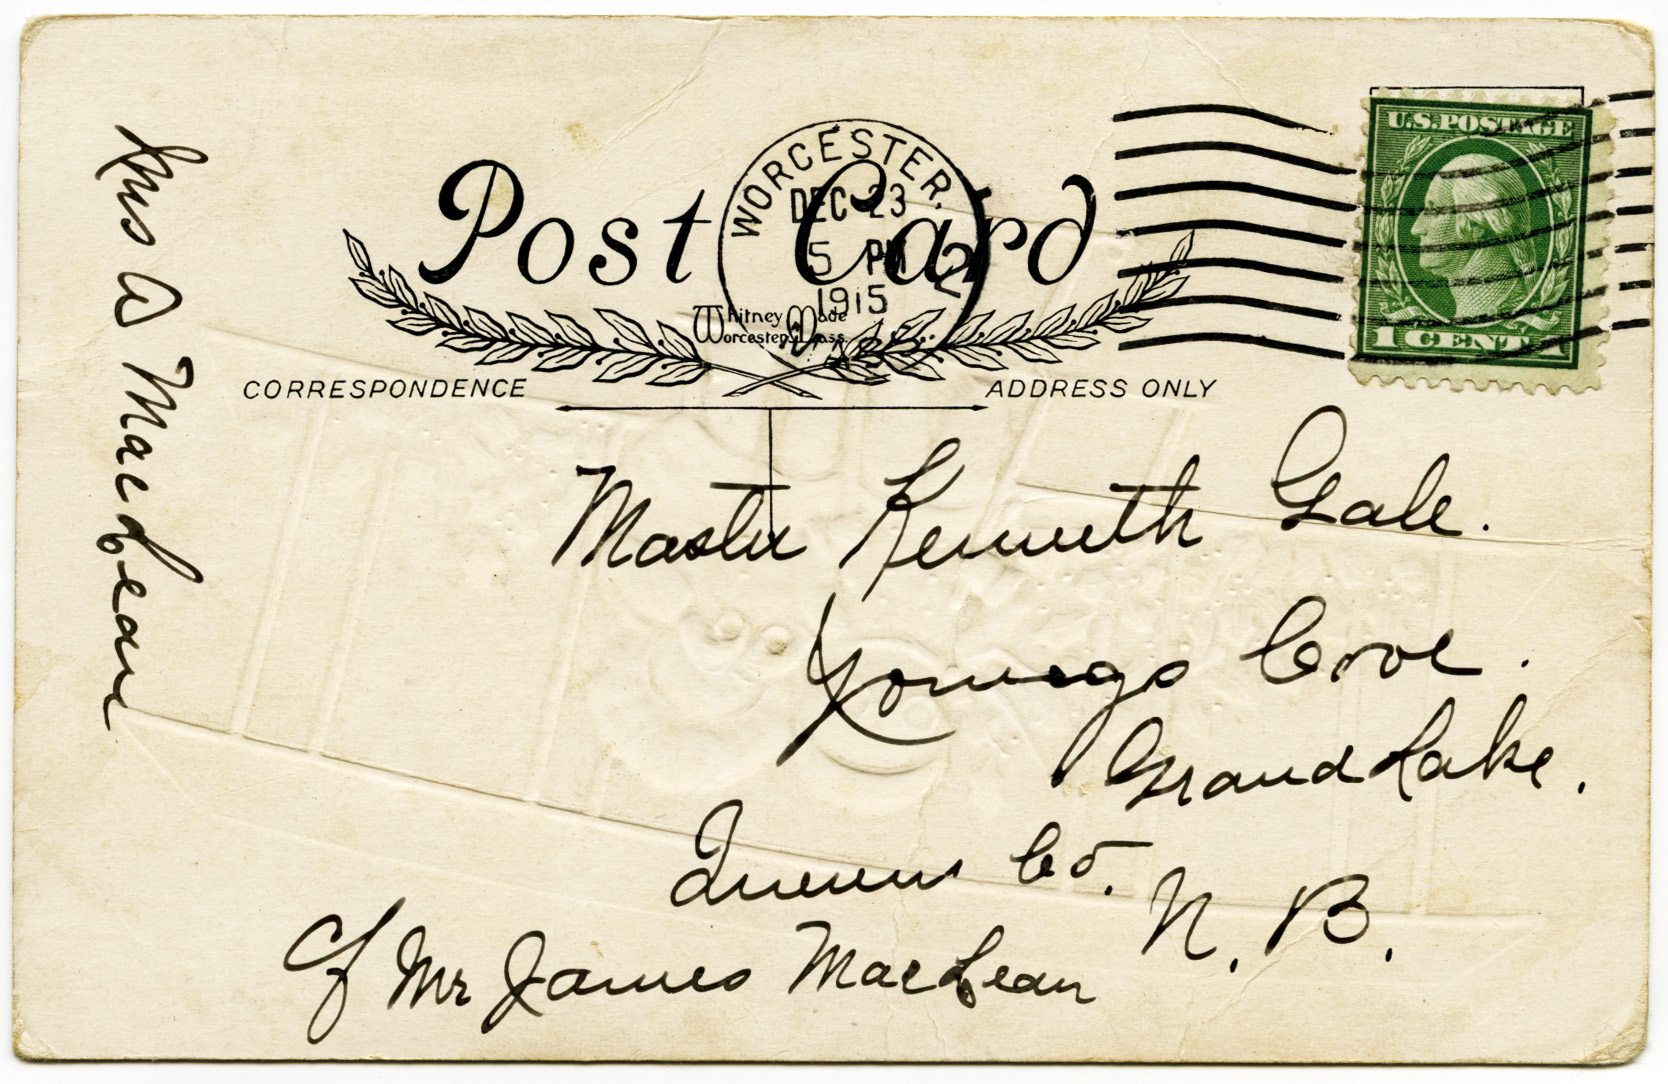 U.S. POSTAGE
1 CENT 1
WORCESTER.
DEC 23
5 PM
1915
MASS.
2
Post Card
Whitney Made
Worcester, Mass.
CORRESPONDENCE
ADDRESS ONLY
Master Kenneth Gale.
Cove.
Grand Lake.
Queens Co. N. B.
Mr James MacLean
Mrs A MacLean